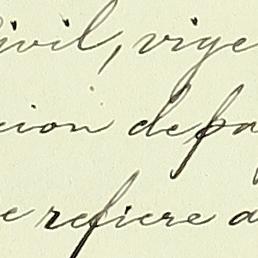 ivil, vige
cion de pa
e refiere a